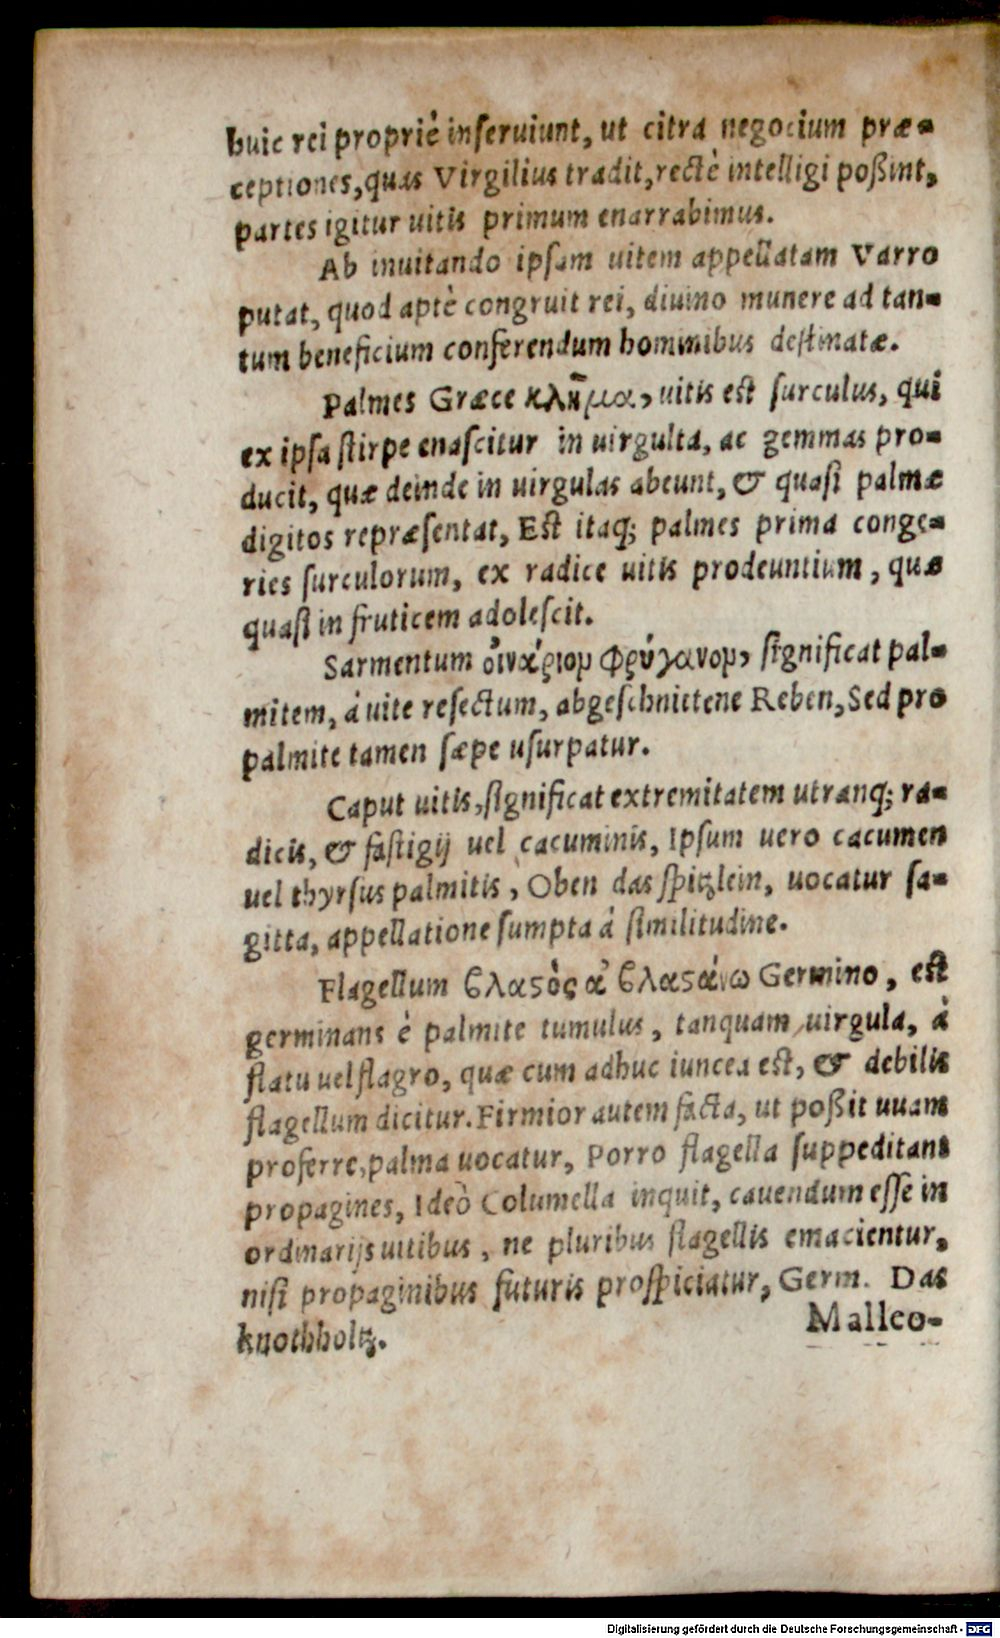 huic rei propriè inseruiunt, ut citra negocium præ-
ceptiones, quas Virgilius tradit, rectè intelligi poßint,
partes igitur uitis primum enarrabimus.
Ab inuitando ipsam uitem appellatam Varro
putat, quod aptè congruit rei, diuino munere ad tan-
tum beneficium conferendum hominibus destinatæ.
Palmes Græce κλῆμα, uitis est surculus, qui
ex ipsa stirpe enascitur in uirgulta, ac gemmas pro-
ducit, quæ deinde in uirgulas abeunt, & quasi palmæ
digitos repræsentat, Est itaq; palmes prima conge-
ries surculorum, ex radice uitis prodeuntium, quæ
quasi in fruticem adolescit.
Sarmentum οἰνάριον φρύγανον, significat pal-
mitem, à uite resectum, abgeschnietene Reben, Sed pro
palmite tamen sæpe usurpatur.
Caput uitis, significat extremitatem utranq; ra-
dicis, & fastigij uel cacuminis, Ipsum uero cacumen
uel thyrsus palmitis, Oben das spitzlein, uocatur sa-
gitta, appellatione sumpta à similitudine.
Flagellum βλαϛὸς ἀ βλαϛάνω Germino, est
germinans è palmite tumulus, tanquam uirgula, à
flatu uel flagro, quæ cum adhuc iuncea est, & debilis
flagellum dicitur. Firmior autem facta, ut poßit uuam
proferre, palma uocatur, Porro flagella suppeditant
propagines, Ideò Columella inquit, cauendum esse in
ordinarijs uitibus, ne pluribus flagellis emacientur,
nisi propaginibus futuris prospiciatur, Germ. Das
knothholtz.
Malleo-
Digitalisierung gefördert durch die Deutsche Forschungsgemeinschaft - DFG